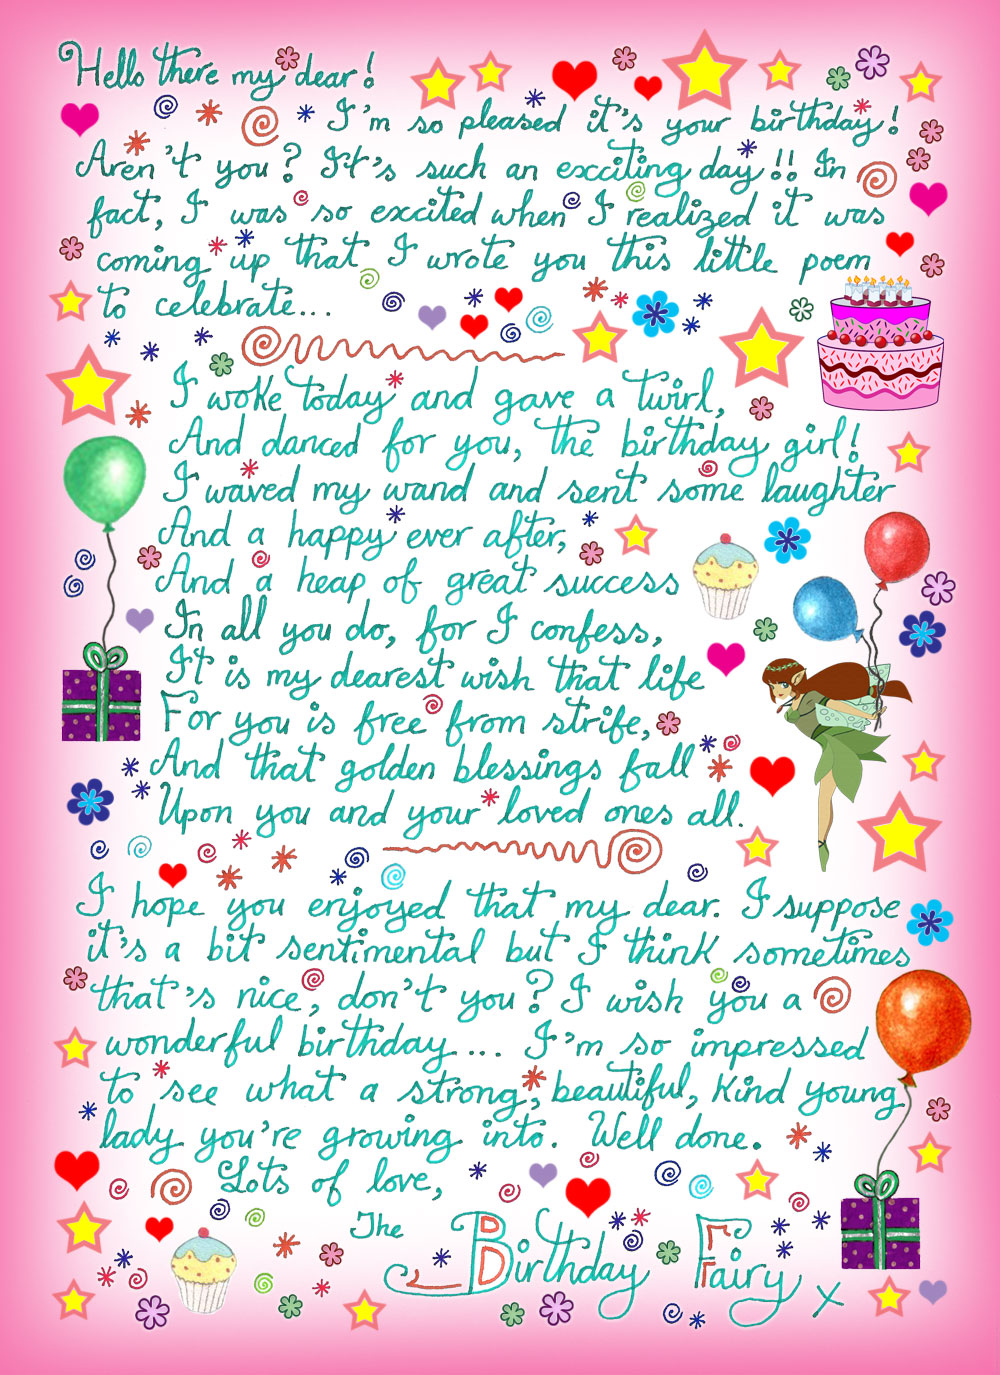 Hello there my dear!
I'm so pleased it's your birthday!
Aren't you? It's such an exciting day!! In
fact, I was so excited when I realized it was
coming up that I wrote you this little poem
to celebrate...
I woke today and gave a twirl,
And danced for you, the birthday girl!
I waved my wand and sent some laughter
And a happy ever after,
And a heap of great success
In all you do, for I confess,
It is my dearest wish that life
For you is free from strife,
And that golden blessings fall
Upon you and your loved ones all.
I hope you enjoyed that my dear. I suppose
it's a bit sentimental but I think sometimes
that's nice, don't you? I wish you a
wonderful birthday.... I'm so impressed
to see what a strong, beautiful, kind young
lady you're growing into. Well done.
Lots of love,
The Birthday Fairy x